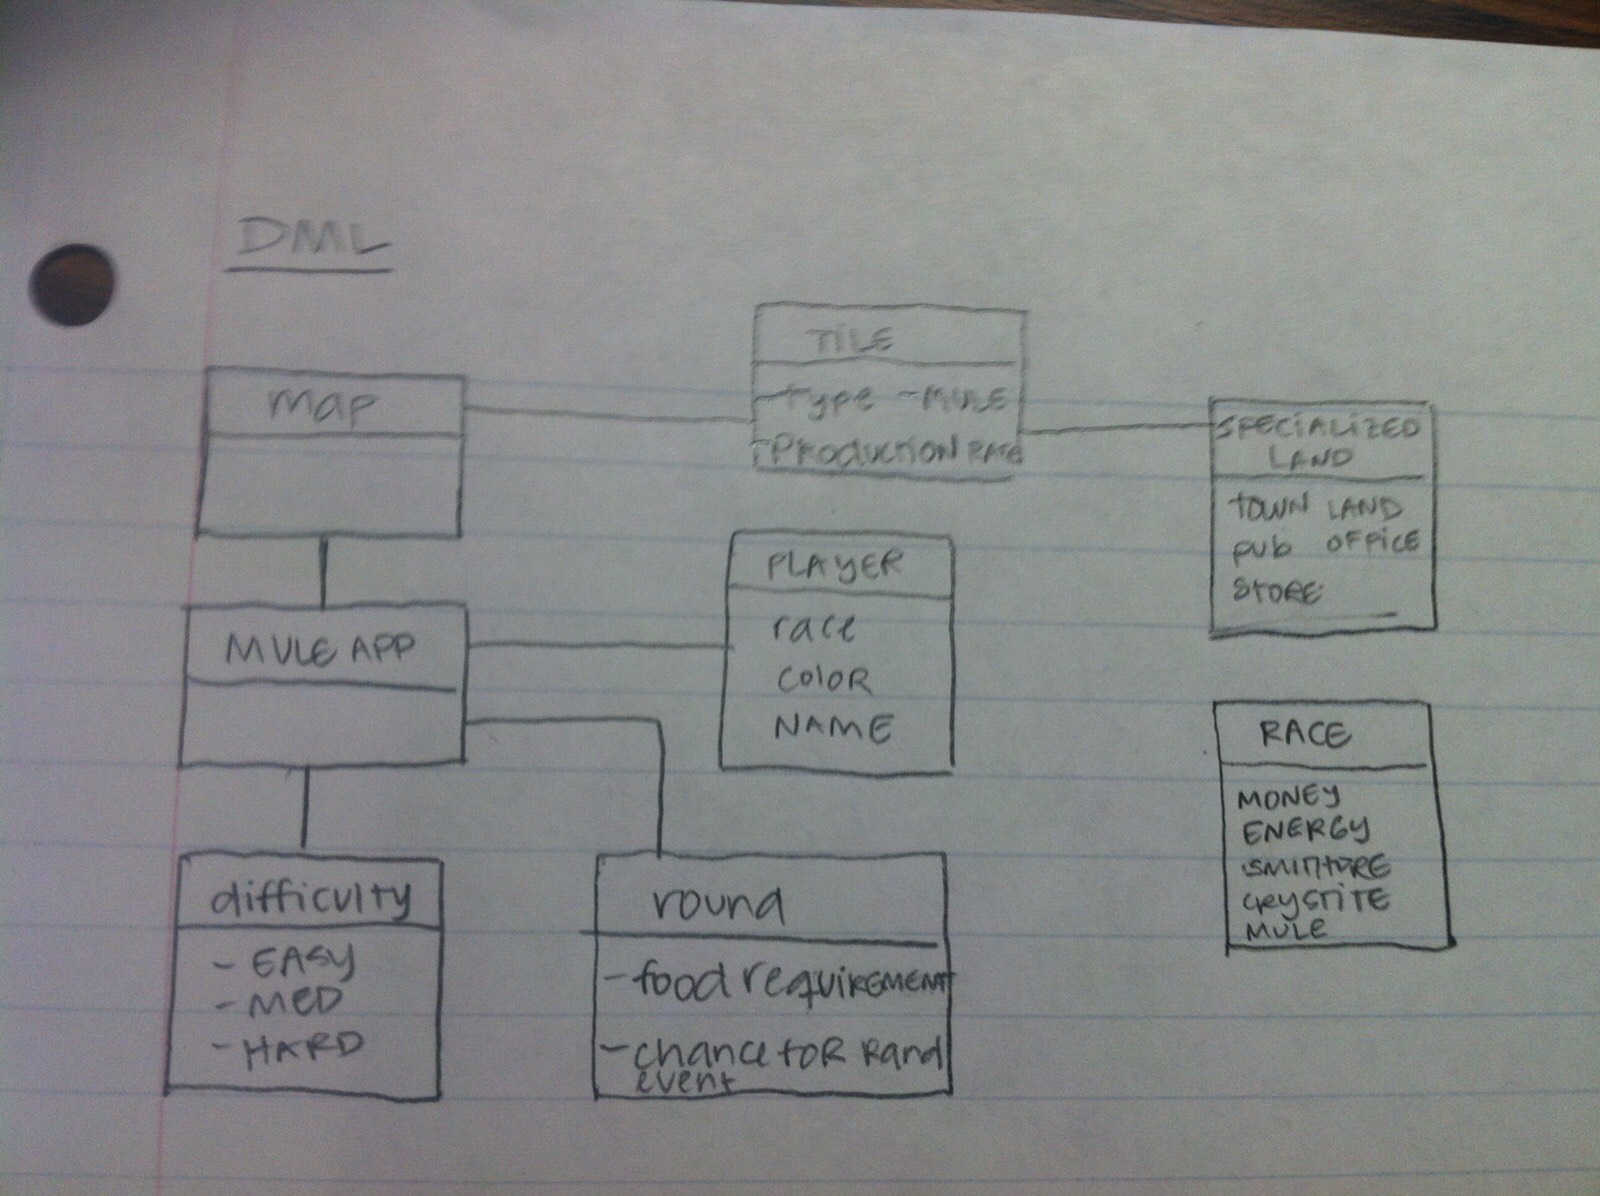 DML
map
TILE
-type -MULE
-PRODUCTION RATE
SPECIALIZED
LAND
TOWN LAND
pub OFFICE
STORE
MULE APP
PLAYER
race
COLOR
NAME
RACE
MONEY
ENERGY
SMITHORE
CRYSTITE
MULE
difficulty
- EASY
- MED
- HARD
round
- food requirement
- chance for Rand
event